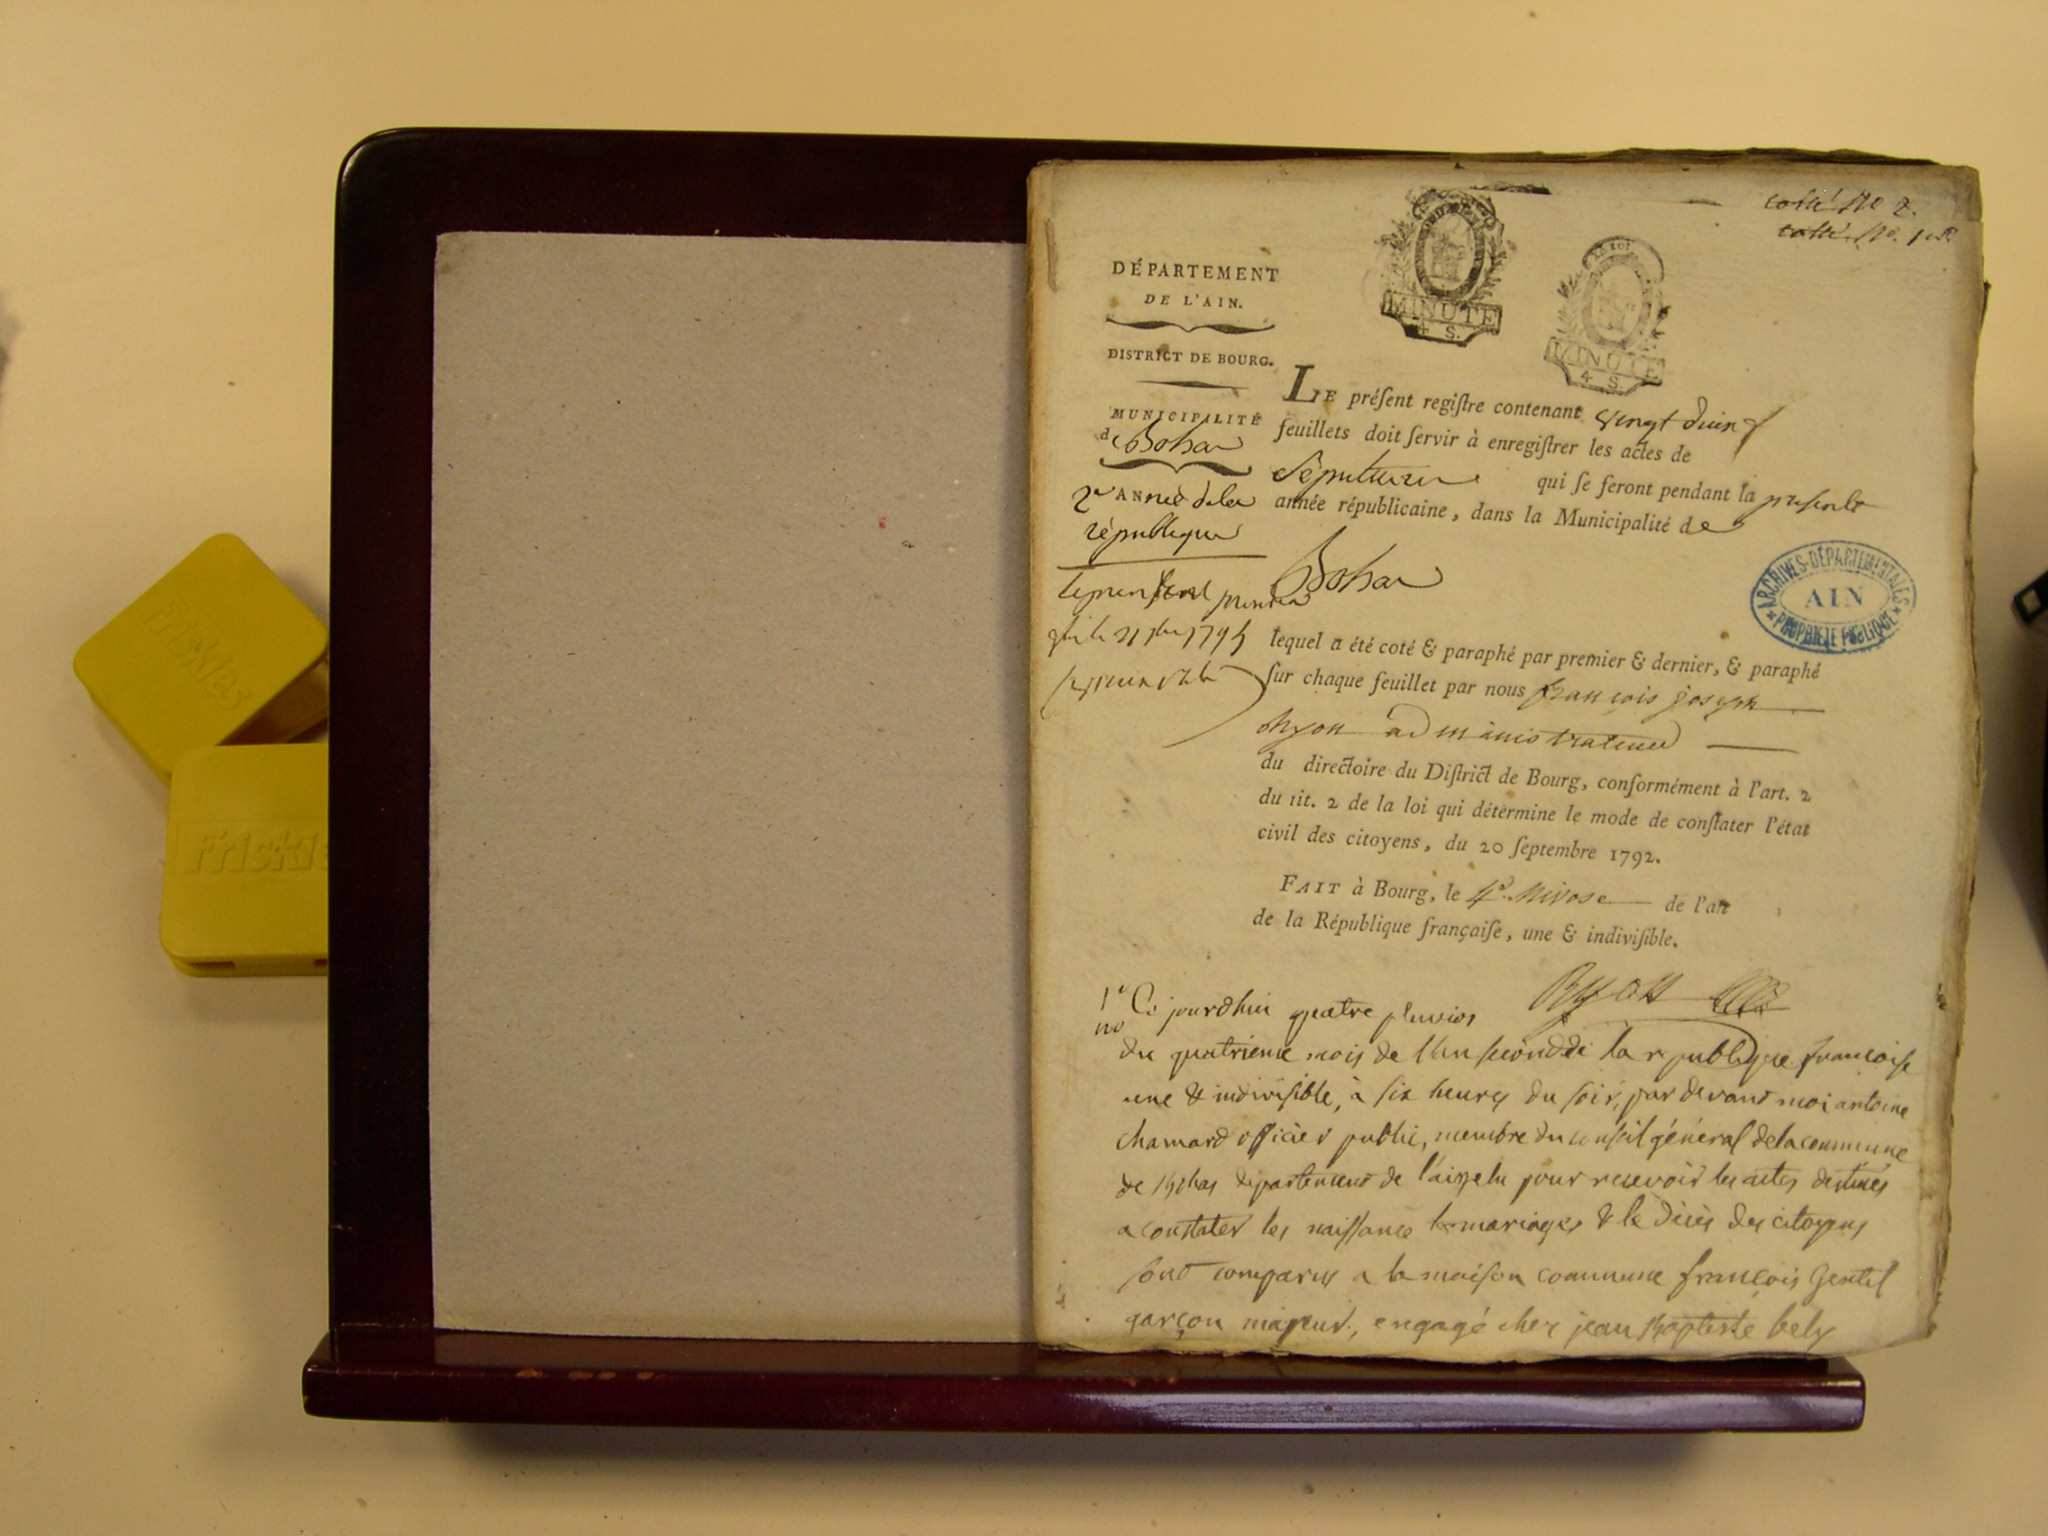 Friskies
Friskie
cotté No 2.
cotté No. 1er
MINUTE
4 S.
MINUTE
4 S.
DÉPARTEMENT
DE L'AIN.
DISTRICT DE BOURG.
MUNICIPALITÉ
de Bohas
2e ANNÉE de la
république
LE préſent regiſtre contenant vingt deux
feuillets doit ſervir à enregiſtrer les actes de
Sépultures qui ſe feront pendant la préſente
année républicaine, dans la Municipalité de
Bohas
ARCHIVES DÉPARTEMENTALES
AIN
PROPRIÉTÉ PUBLIQUE
lequel a été coté & paraphé par premier & dernier, & paraphé
ſur chaque feuillet par nous françois joseph
administrateur
du directoire du Diſtrict de Bourg, conformément à l'art. 2
du tit. 2 de la loi qui détermine le mode de conſtater l'état
civil des citoyens, du 20 ſeptembre 1792.
FAIT à Bourg, le 4e. Nivose de l'an
de la République françaiſe, une & indiviſible.
1er
no
Ce jourdhui quatre pluvios
du quatrieme mois de l'an second de la republique francoise
une & indivisible, à six heures du soir, par devant moi antoine
chamard officier public, membre du conseil général de la commune
de Bohas departement de l'ain elu pour recevoir les actes destinés
a constater les naissance les mariages & le décès des citoyens
sont comparus a la maison commune françois Gentil
garçon majeur, engagé chez jean Baptiste bely